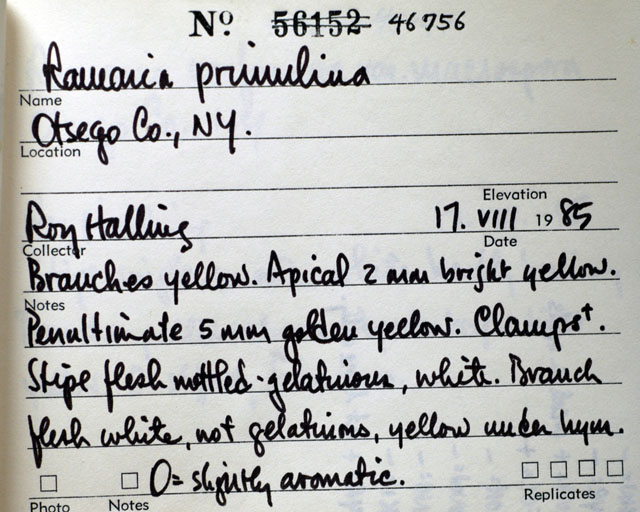 Nº 56152 46756
Ramaria primulina
Name
Otsego Co., NY.
Location
Elevation
Roy Halling 17. VIII 1985
Collector Date
Branches yellow. Apical 2 mm bright yellow.
Notes
Penultimate 5 mm golden yellow. Clamps+.
Stipe flesh mottled-gelatinous, white. Branch
flesh white, not gelatinous, yellow under hym.
O= slightly aromatic.
Photo Notes Replicates